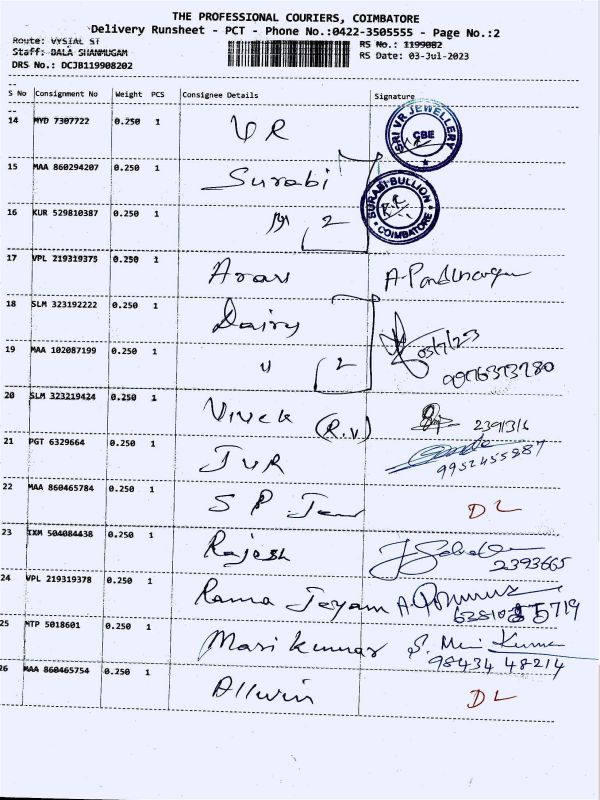 THE PROFESSIONAL COURIERS, COIMBATORE
Delivery Runsheet - PCT - Phone No.:0422-3505555 - Page No.:2
Route: VYSIAL ST
Staff: BALA SHANMUGAM
DRS No.: DCJB119908202
RS No.: 1199082
RS Date: 03-Jul-2023
S No Consignment No Weight PCS Consignee Details Signature
14 MYD 7307722 0.250 1 VR
SRI VR JEWELLERY CBE
15 MAA 860294207 0.250 1 Surabi
SURABI BULLION COIMBATORE
16 KUR 529810387 0.250 1 2
17 VPL 219319375 0.250 1 Aravs
18 SLM 323192222 0.250 1 Dairy
03/7/23
19 MAA 102087199 0.250 1 " 2
20 SLM 323219424 0.250 1 Vivek (R.V)
21 PGT 6329664 0.250 1 JVR
9952455887
22 MAA 860465784 0.250 1 S P DL
23 IXM 504084438 0.250 1 Rajesh
2393665
24 VPL 219319378 0.250 1 Rama Jeyam
25 MTP 5018601 0.250 1 Mari kumar S. Mari Kumar
98434 48214
26 MAA 860465754 0.250 1 Allwin DL